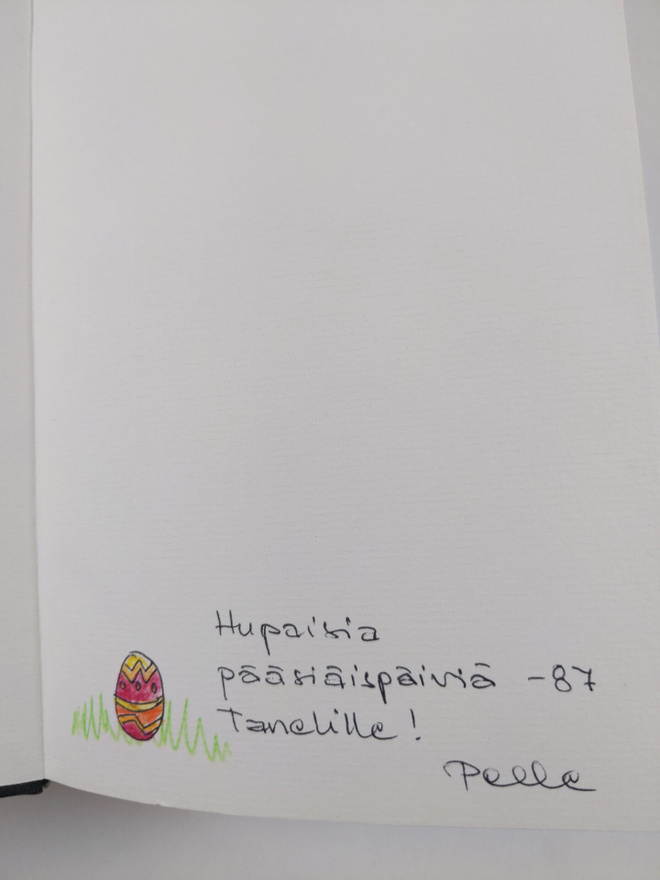 Hupaisia
pääsiäispäiviä -87
Tanelille!
Pelle